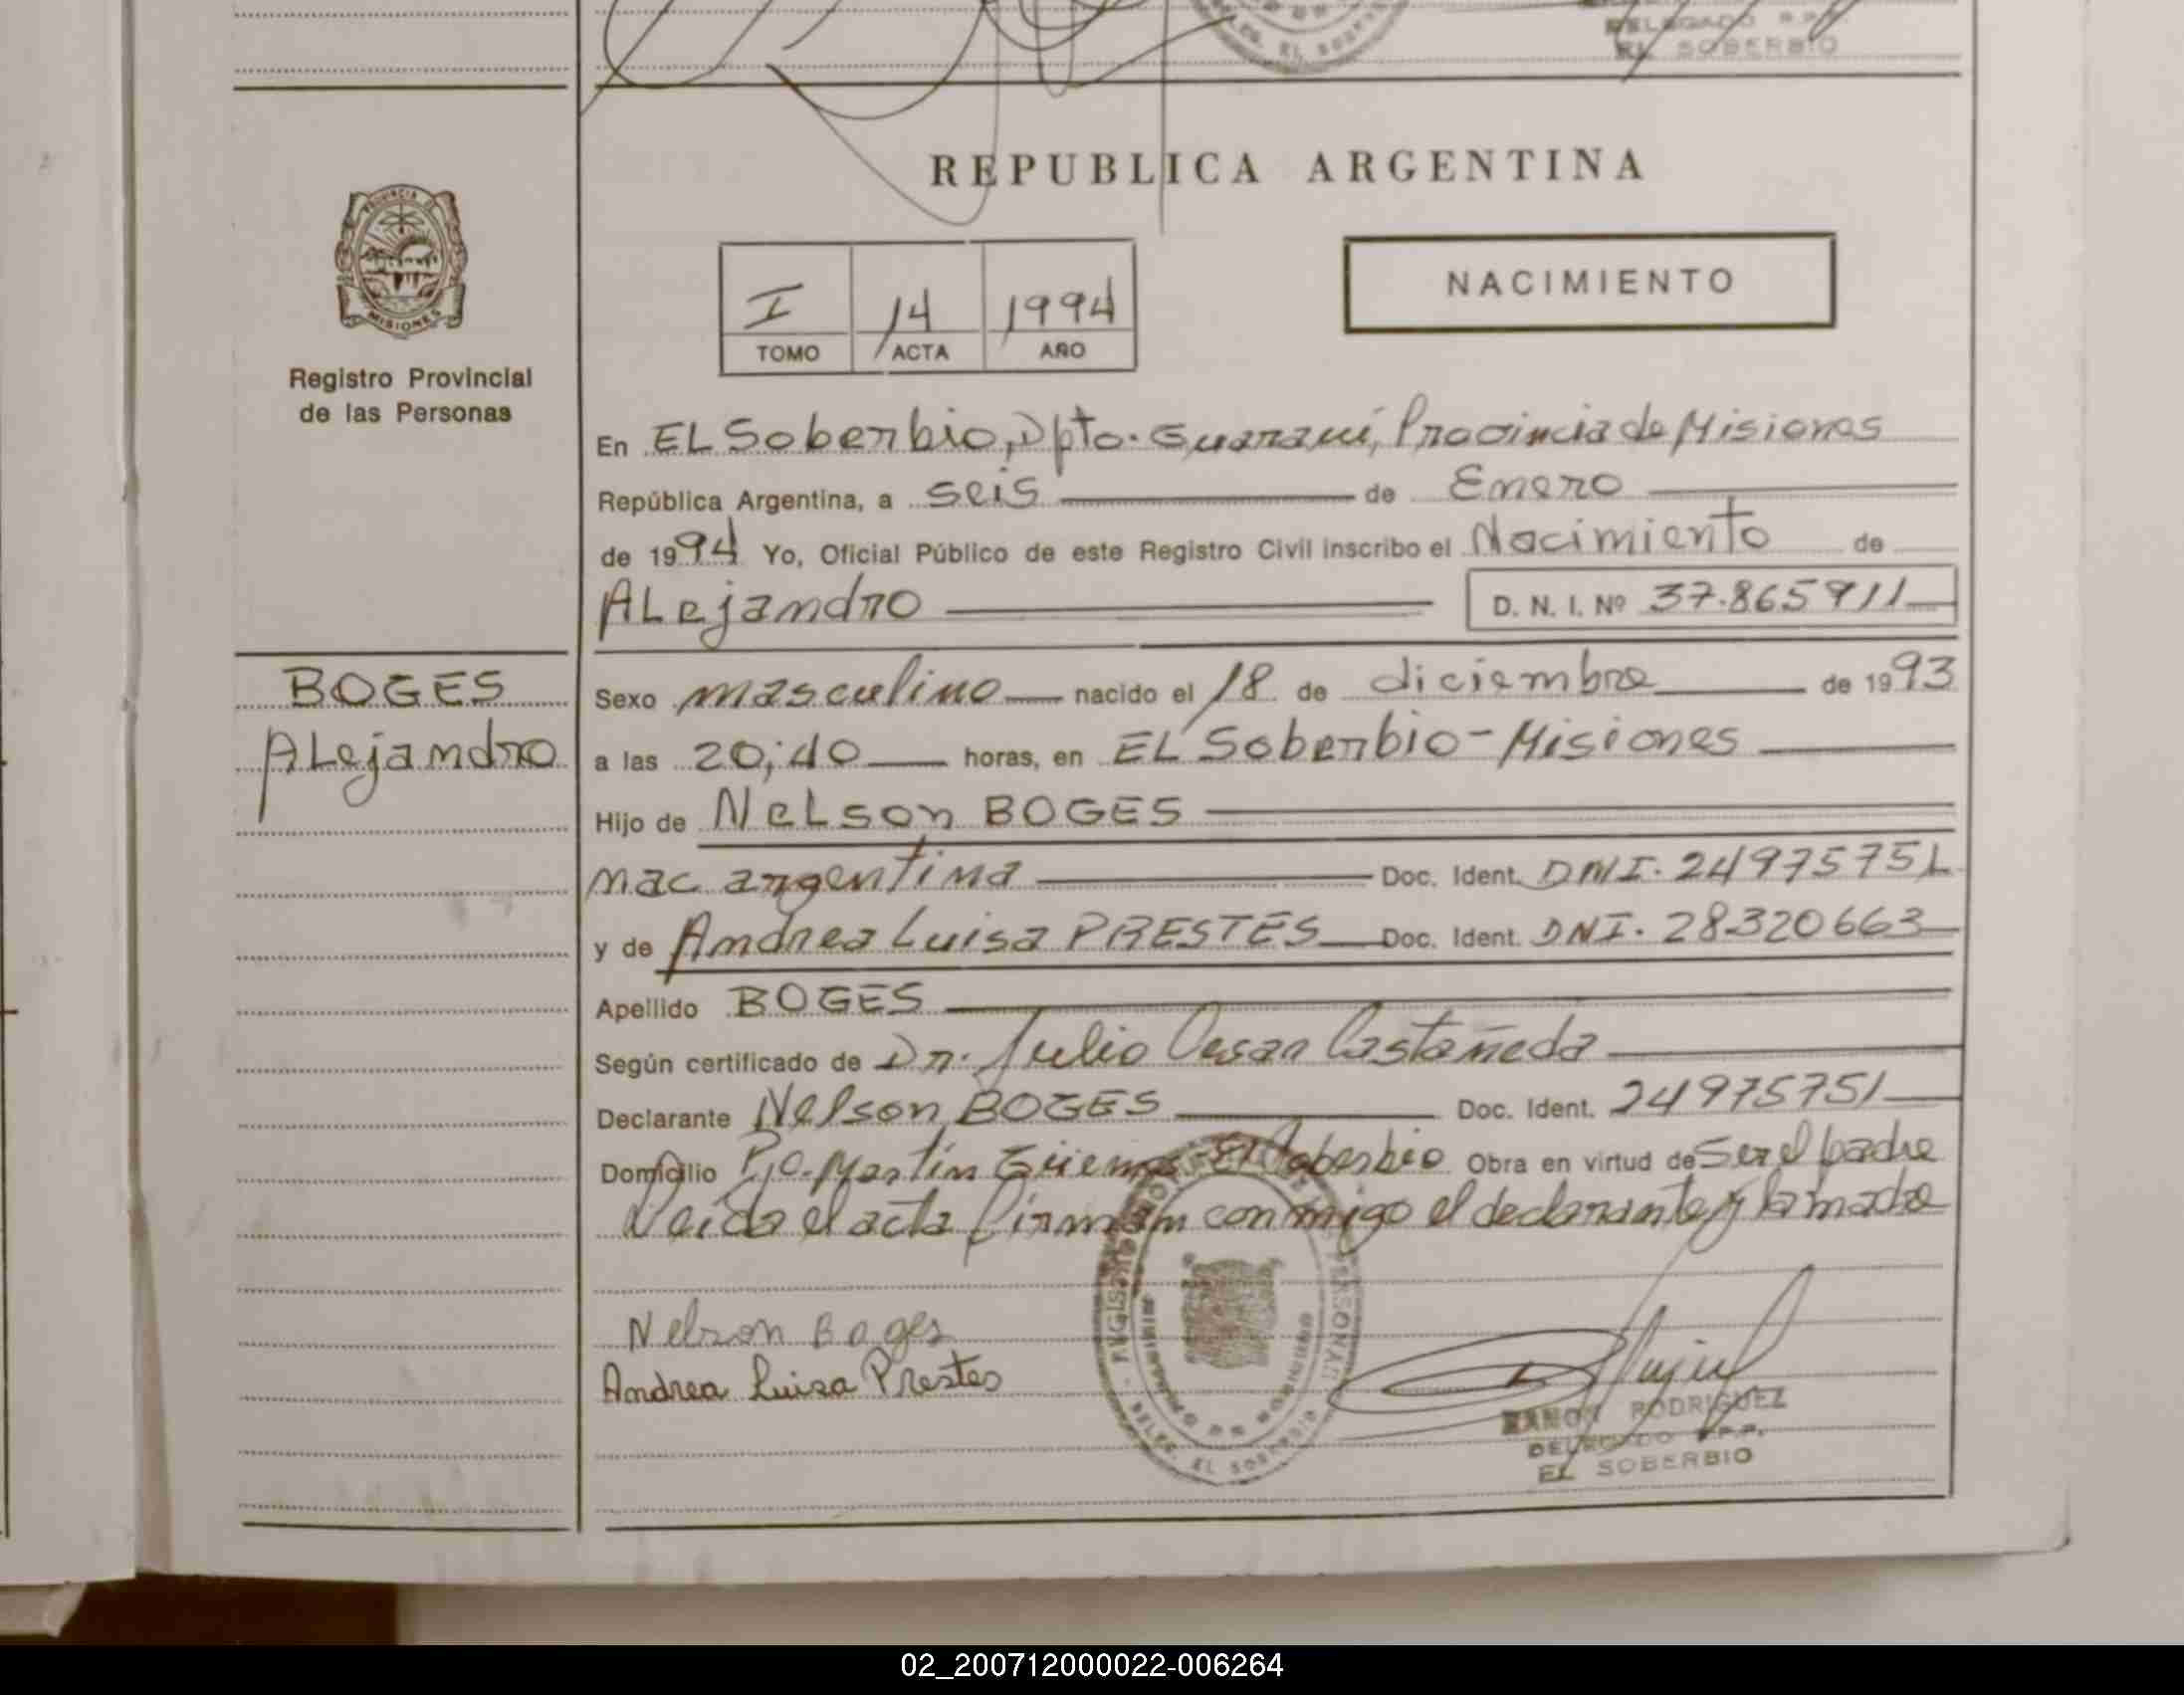 DELEGADO R.P.P.
EL SOBERBIO
DELEG. EL SOBERBIO
REPUBLICA ARGENTINA
PROVINCIA DE MISIONES
NACIMIENTO
I 14 1994
TOMO ACTA AÑO
Registro Provincial
de las Personas
En EL Soberbio, Dpto. Guaraní, Provincia de Misiones
República Argentina, a seis de Enero
de 1994 Yo, Oficial Público de este Registro Civil inscribo el Nacimiento de
ALejandro D. N. I. Nº 37.865911
BOGES
ALejandro
Sexo masculino nacido el 18 de diciembre de 1993
a las 20;40 horas, en EL Soberbio - Misiones
Hijo de NeLson BOGES
nac argentina Doc. Ident. DNI. 24975751
y de Andrea Luisa PRESTES Doc. Ident. DNI. 28320663
Apellido BOGES
Según certificado de Dr. Julio Cesar Castañeda
Declarante Nelson BOGES Doc. Ident. 24975751
Domicilio Martín Güemes - El Soberbio Obra en virtud de Ser el padre
Leida el acta firman conmigo el declarante y la madre
Nelson Boges
Andrea Luisa Prestes
RAMON RODRIGUEZ
DELEGADO R.P.P.
EL SOBERBIO
DELEG. EL SOBERBIO
02_200712000022-006264